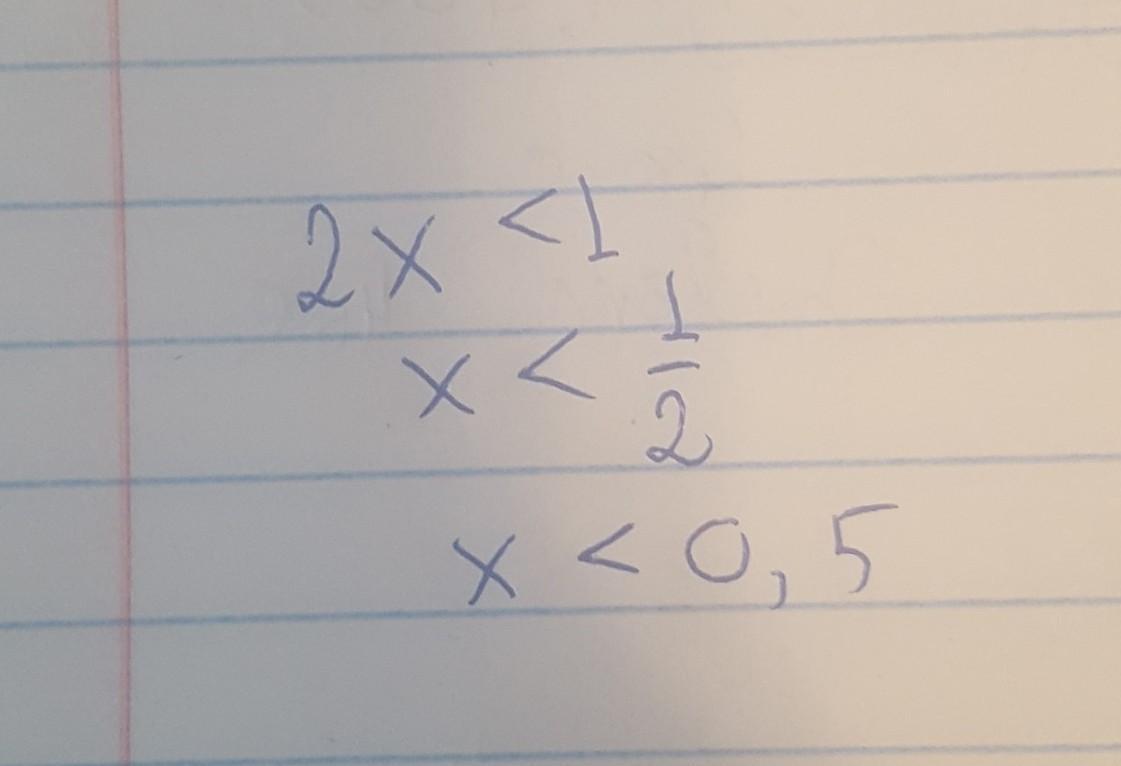 2x < 1
x < 1/2
x < 0,5